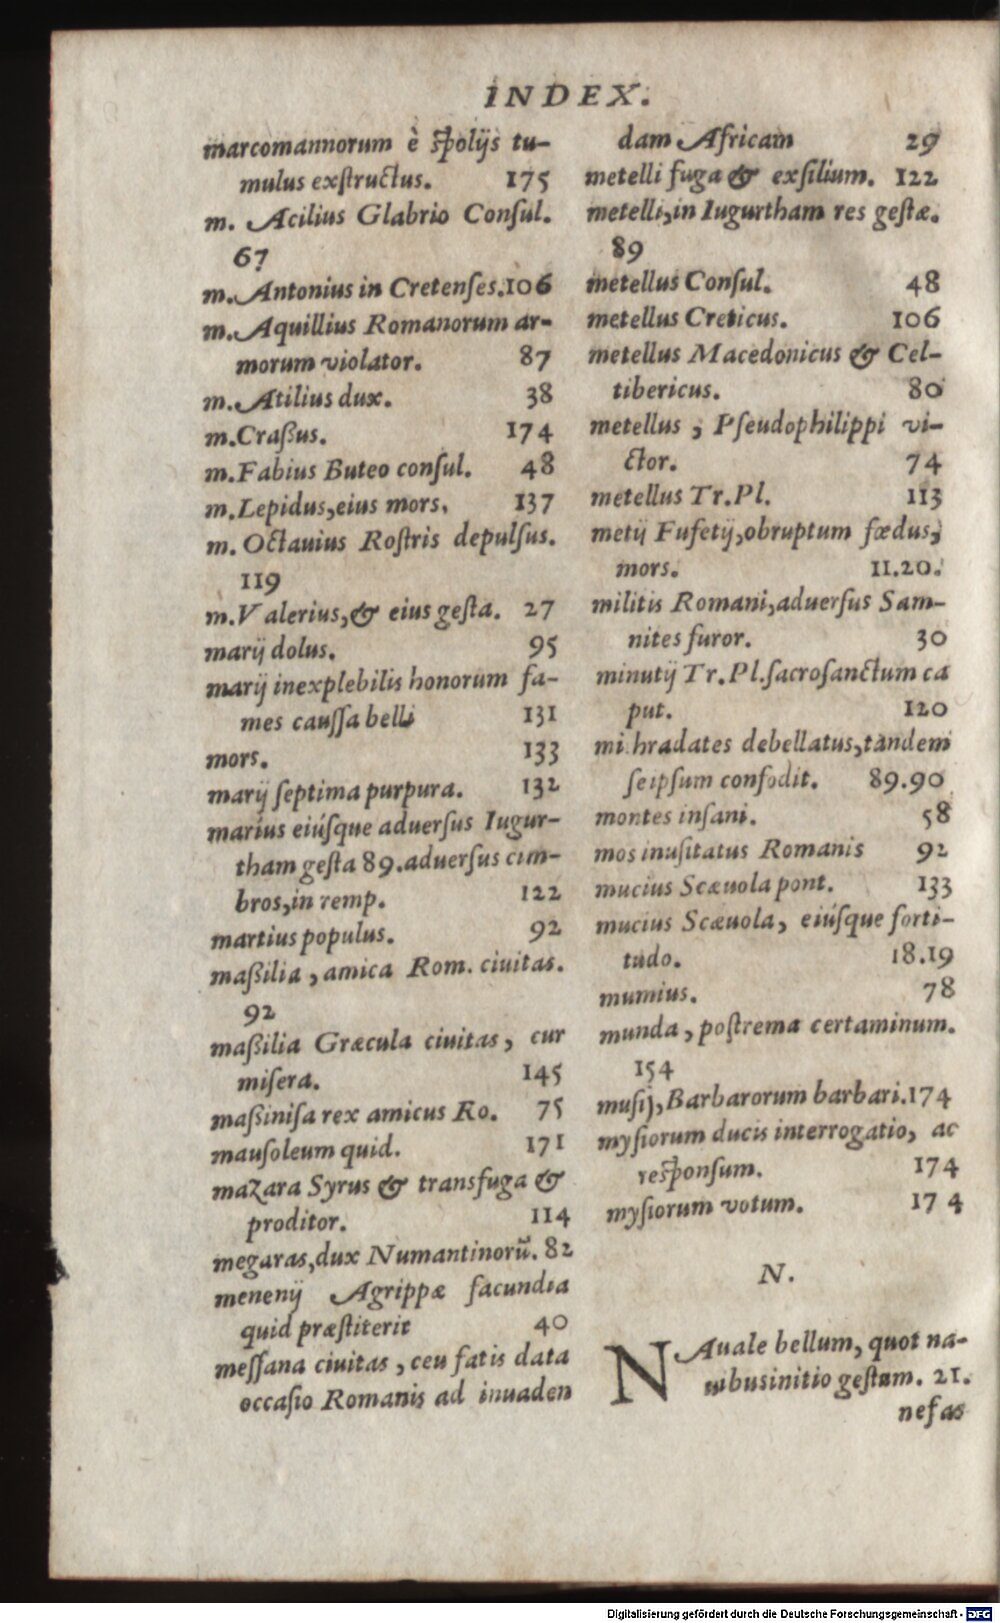 INDEX.
marcomannorum è spolijs tu-
mulus exſtructus. 175
m. Acilius Glabrio Conſul.
67
m. Antonius in Cretenſes. 106
m. Aquillius Romanorum ar-
morum violator. 87
m. Atilius dux. 38
m. Craßus. 174
m. Fabius Buteo conſul. 48
m. Lepidus, eius mors. 137
m. Octauius Roſtris depulſus.
119
m. Valerius, & eius geſta. 27
marij dolus. 95
marij inexplebilis honorum fa-
mes cauſſa belli 131
mors. 133
marij ſeptima purpura. 132
marius eiúſque aduerſus Iugur-
tham geſta 89. aduerſus cim-
bros, in remp. 122
martius populus. 92
maßilia, amica Rom. ciuitas.
92
maßilia Græcula ciuitas, cur
miſera. 145
maßiniſa rex amicus Ro. 75
mauſoleum quid. 171
mazara Syrus & transfuga &
proditor. 114
megaras, dux Numantinorũ. 82
menenij Agrippæ facundia
quid præſtiterit 40
meſſana ciuitas, ceu fatis data
occaſio Romanis ad inuaden
dam Africam 29
metelli fuga & exſilium. 122
metelli, in Iugurtham res geſtæ.
89
metellus Conſul. 48
metellus Creticus. 106
metellus Macedonicus & Cel-
tibericus. 80
metellus, Pſeudophilippi vi-
ctor. 74
metellus Tr. Pl. 113
metij Fufetij, obruptum fœdus,
mors. 11.20.
militis Romani, aduerſus Sam-
nites furor. 30
minutij Tr. Pl. ſacroſanctum ca
put. 120
mi hradates debellatus, tandem
ſeipſum confodit. 89.90
montes inſani. 58
mos inuſitatus Romanis 92
mucius Scæuola pont. 133
mucius Scæuola, eiúſque forti-
tudo. 18.19
mumius. 78
munda, poſtrema certaminum.
154
muſij, Barbarorum barbari. 174
myſiorum ducis interrogatio, ac
reſponſum. 174
myſiorum votum. 174
N.
NAuale bellum, quot na-
uibus initio geſtum. 21.
nefas
Digitalisierung gefördert durch die Deutsche Forschungsgemeinschaft - DFG